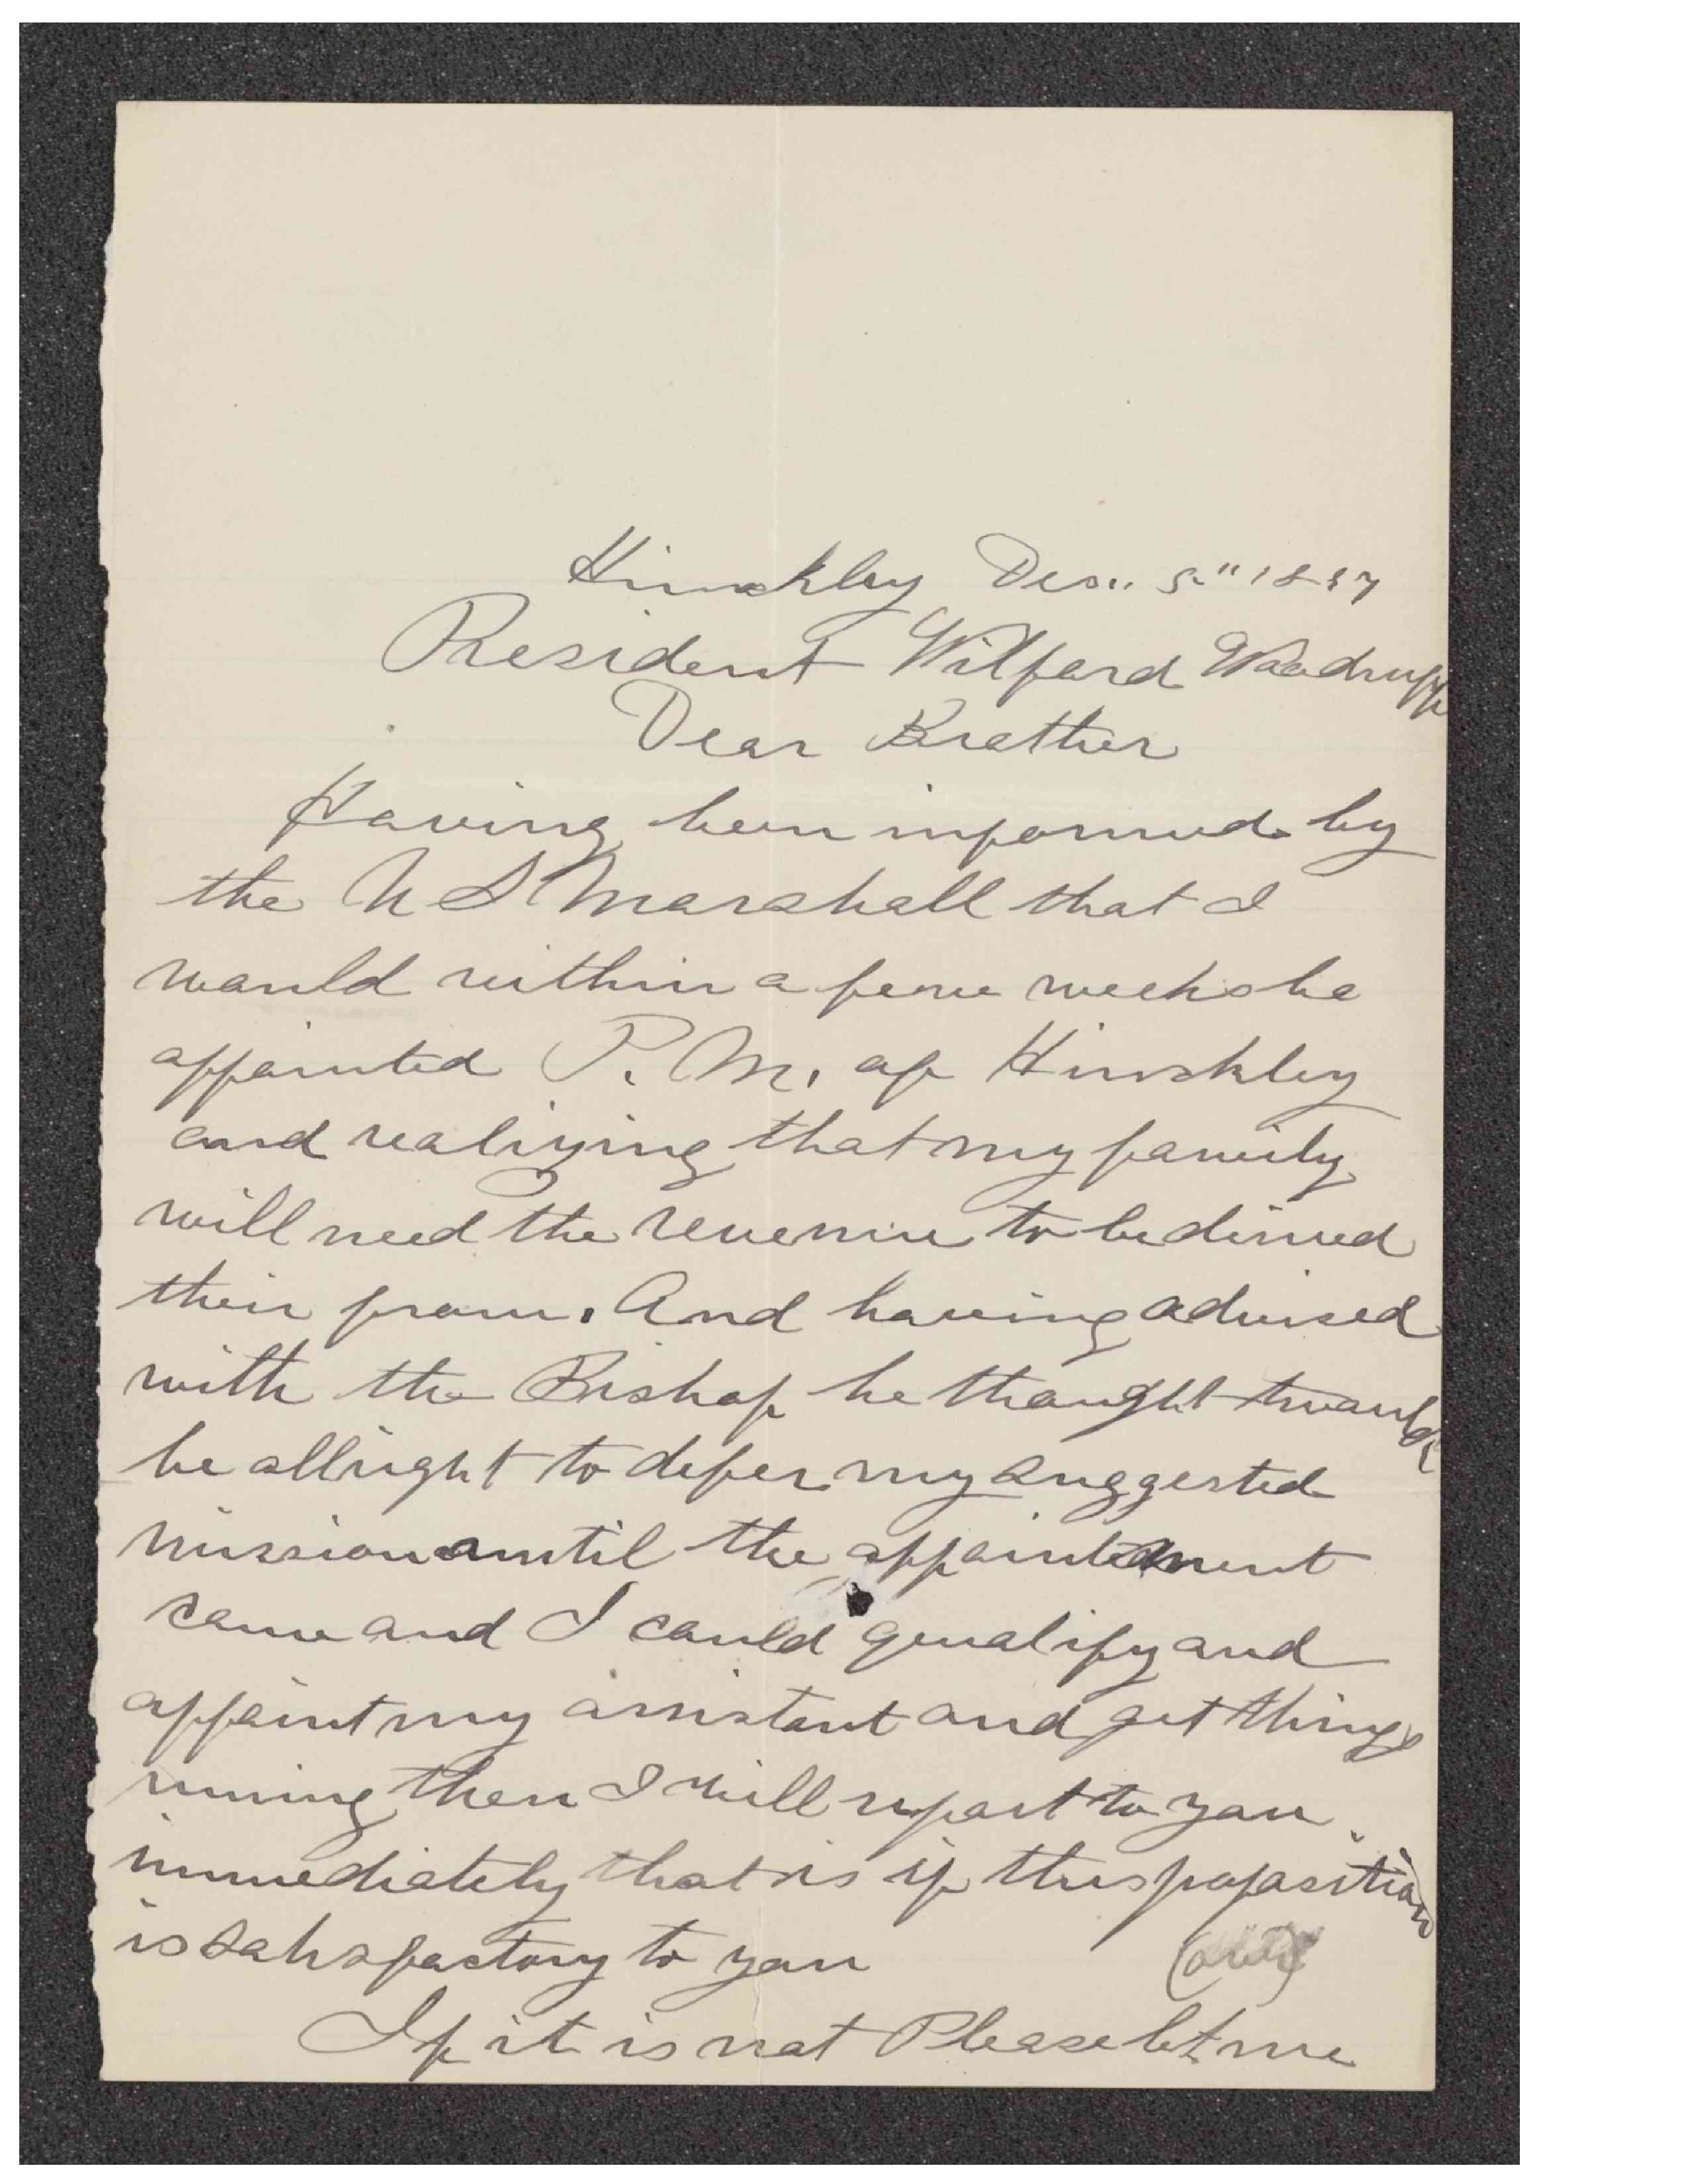 Hinckley Dec.. 5" 1897
President Wilford Woodruff
Dear Brother
Having been informed by
the U S Marshall that I
would within a fewe weeks be
appointed P. M. of Hinckley
and realizing that my family
will need the revenue to be dirived
their from. And having advised
with the Bishop he thought twould
be allright to defer my suggested
mission until the appointment
came and I could qualify and
appoint my assistant and get things
runing then I will report to you
immediately that is if this poposition
is satisfactory to you
(over)
If it is not Please let me